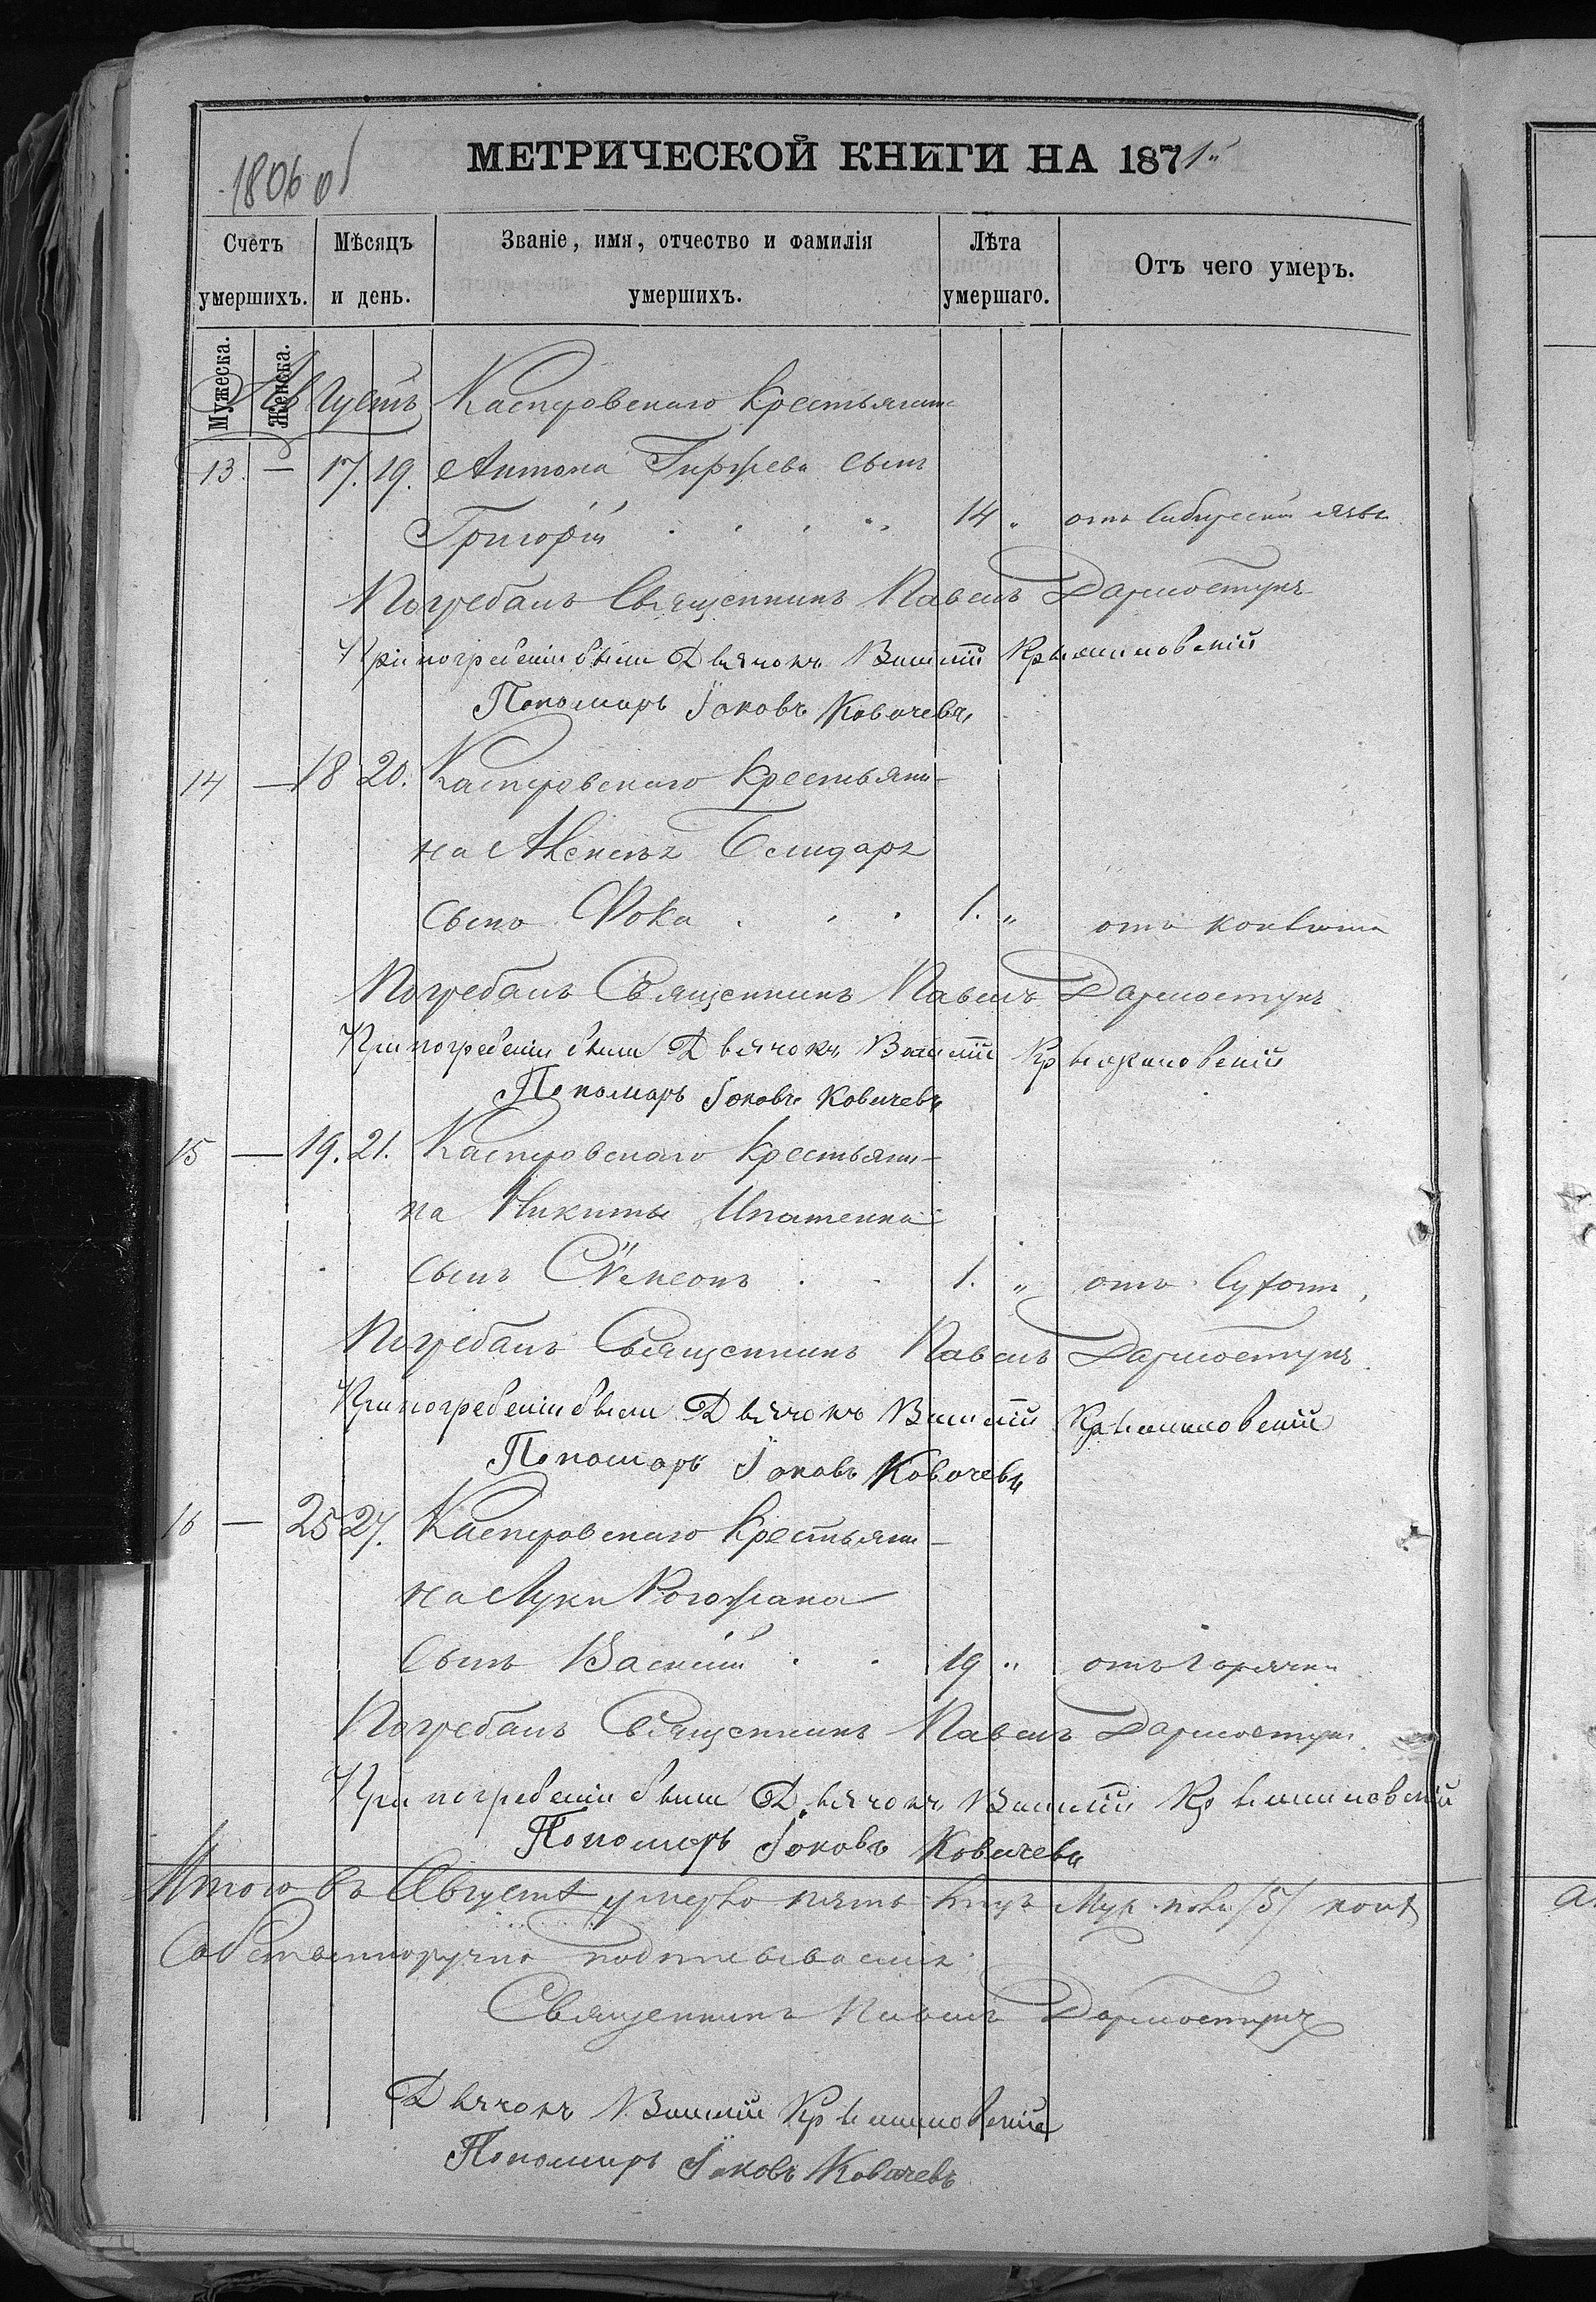 МЕТРИЧЕСКОЙ КНИГИ НА 1871
1806 об
Счетъ умершихъ.
Мѣсяцъ и день.
Званіе, имя, отчество и фамилія умершихъ.
Лѣта умершаго.
Отъ чего умеръ.
Мужеска.
Женска.
Августъ Касперовскаго Крестьянина
13. — 17. 19. Антона Гиржева сынъ
Григорій 14 " отъ Сибирской язвы
Погребалъ Священникъ Павелъ
При погребеніи были Дьячокъ Василій
Пономарь Іаковъ Ковачевъ
14 — 18 20. Касперовскаго Крестьяни-
на
сынъ Фока 1. " отъ
Погребалъ Священникъ Павелъ
При погребеніи были Дьячокъ Василій
Пономарь Іаковъ Ковачевъ
15 — 19. 21. Касперовскаго Крестьяни-
на Никиты Ипатенка
сынъ Сѵмеонъ 1. " отъ Сухотъ
Погребалъ Священникъ Павелъ
При погребеніи были Дьячокъ Василій
Пономарь Іаковъ Ковачевъ
16 — 25 27. Касперовскаго Крестьяни-
на Луки Рогожана
сынъ Василій 19 " отъ горячки
Погребалъ Священникъ Павелъ
При погребеніи были Дьячокъ Василій
Пономарь Іаковъ Ковачевъ
Итого въ Августѣ умерло пять душъ Муж. пола /5/
Собственноручно
Священникъ Павелъ
Дьячокъ Василій
Пономарь Іаковъ Ковачевъ